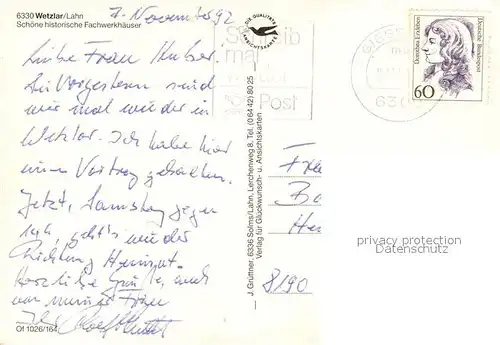 6330 Wetzlar/Lahn
Schöne historische Fachwerkhäuser
7. November 92
Liebe Frau Huber!
Seit Vorgestern sind
wir mal wieder in
Wetzlar. Ich habe hier
einen Vortrag gehalten.
Jetzt, Samstag gegen
geht's wieder
Richtung Heimat.
Herzliche Grüße, auch
von meiner Frau
Ihr
Of 1026/164
DIE QUALITÄTS
ANSICHTSKARTE
Schreib
mal
wieder
Post
J. Grüttner, 6336 Solms/Lahn, Lerchenweg 8, Tel. (0 64 42) 80 25
Verlag für Glückwunsch- u. Ansichtskarten
630
Dorothea Erxleben
Deutsche Bundespost
60
8190
privacy protection
Datenschutz